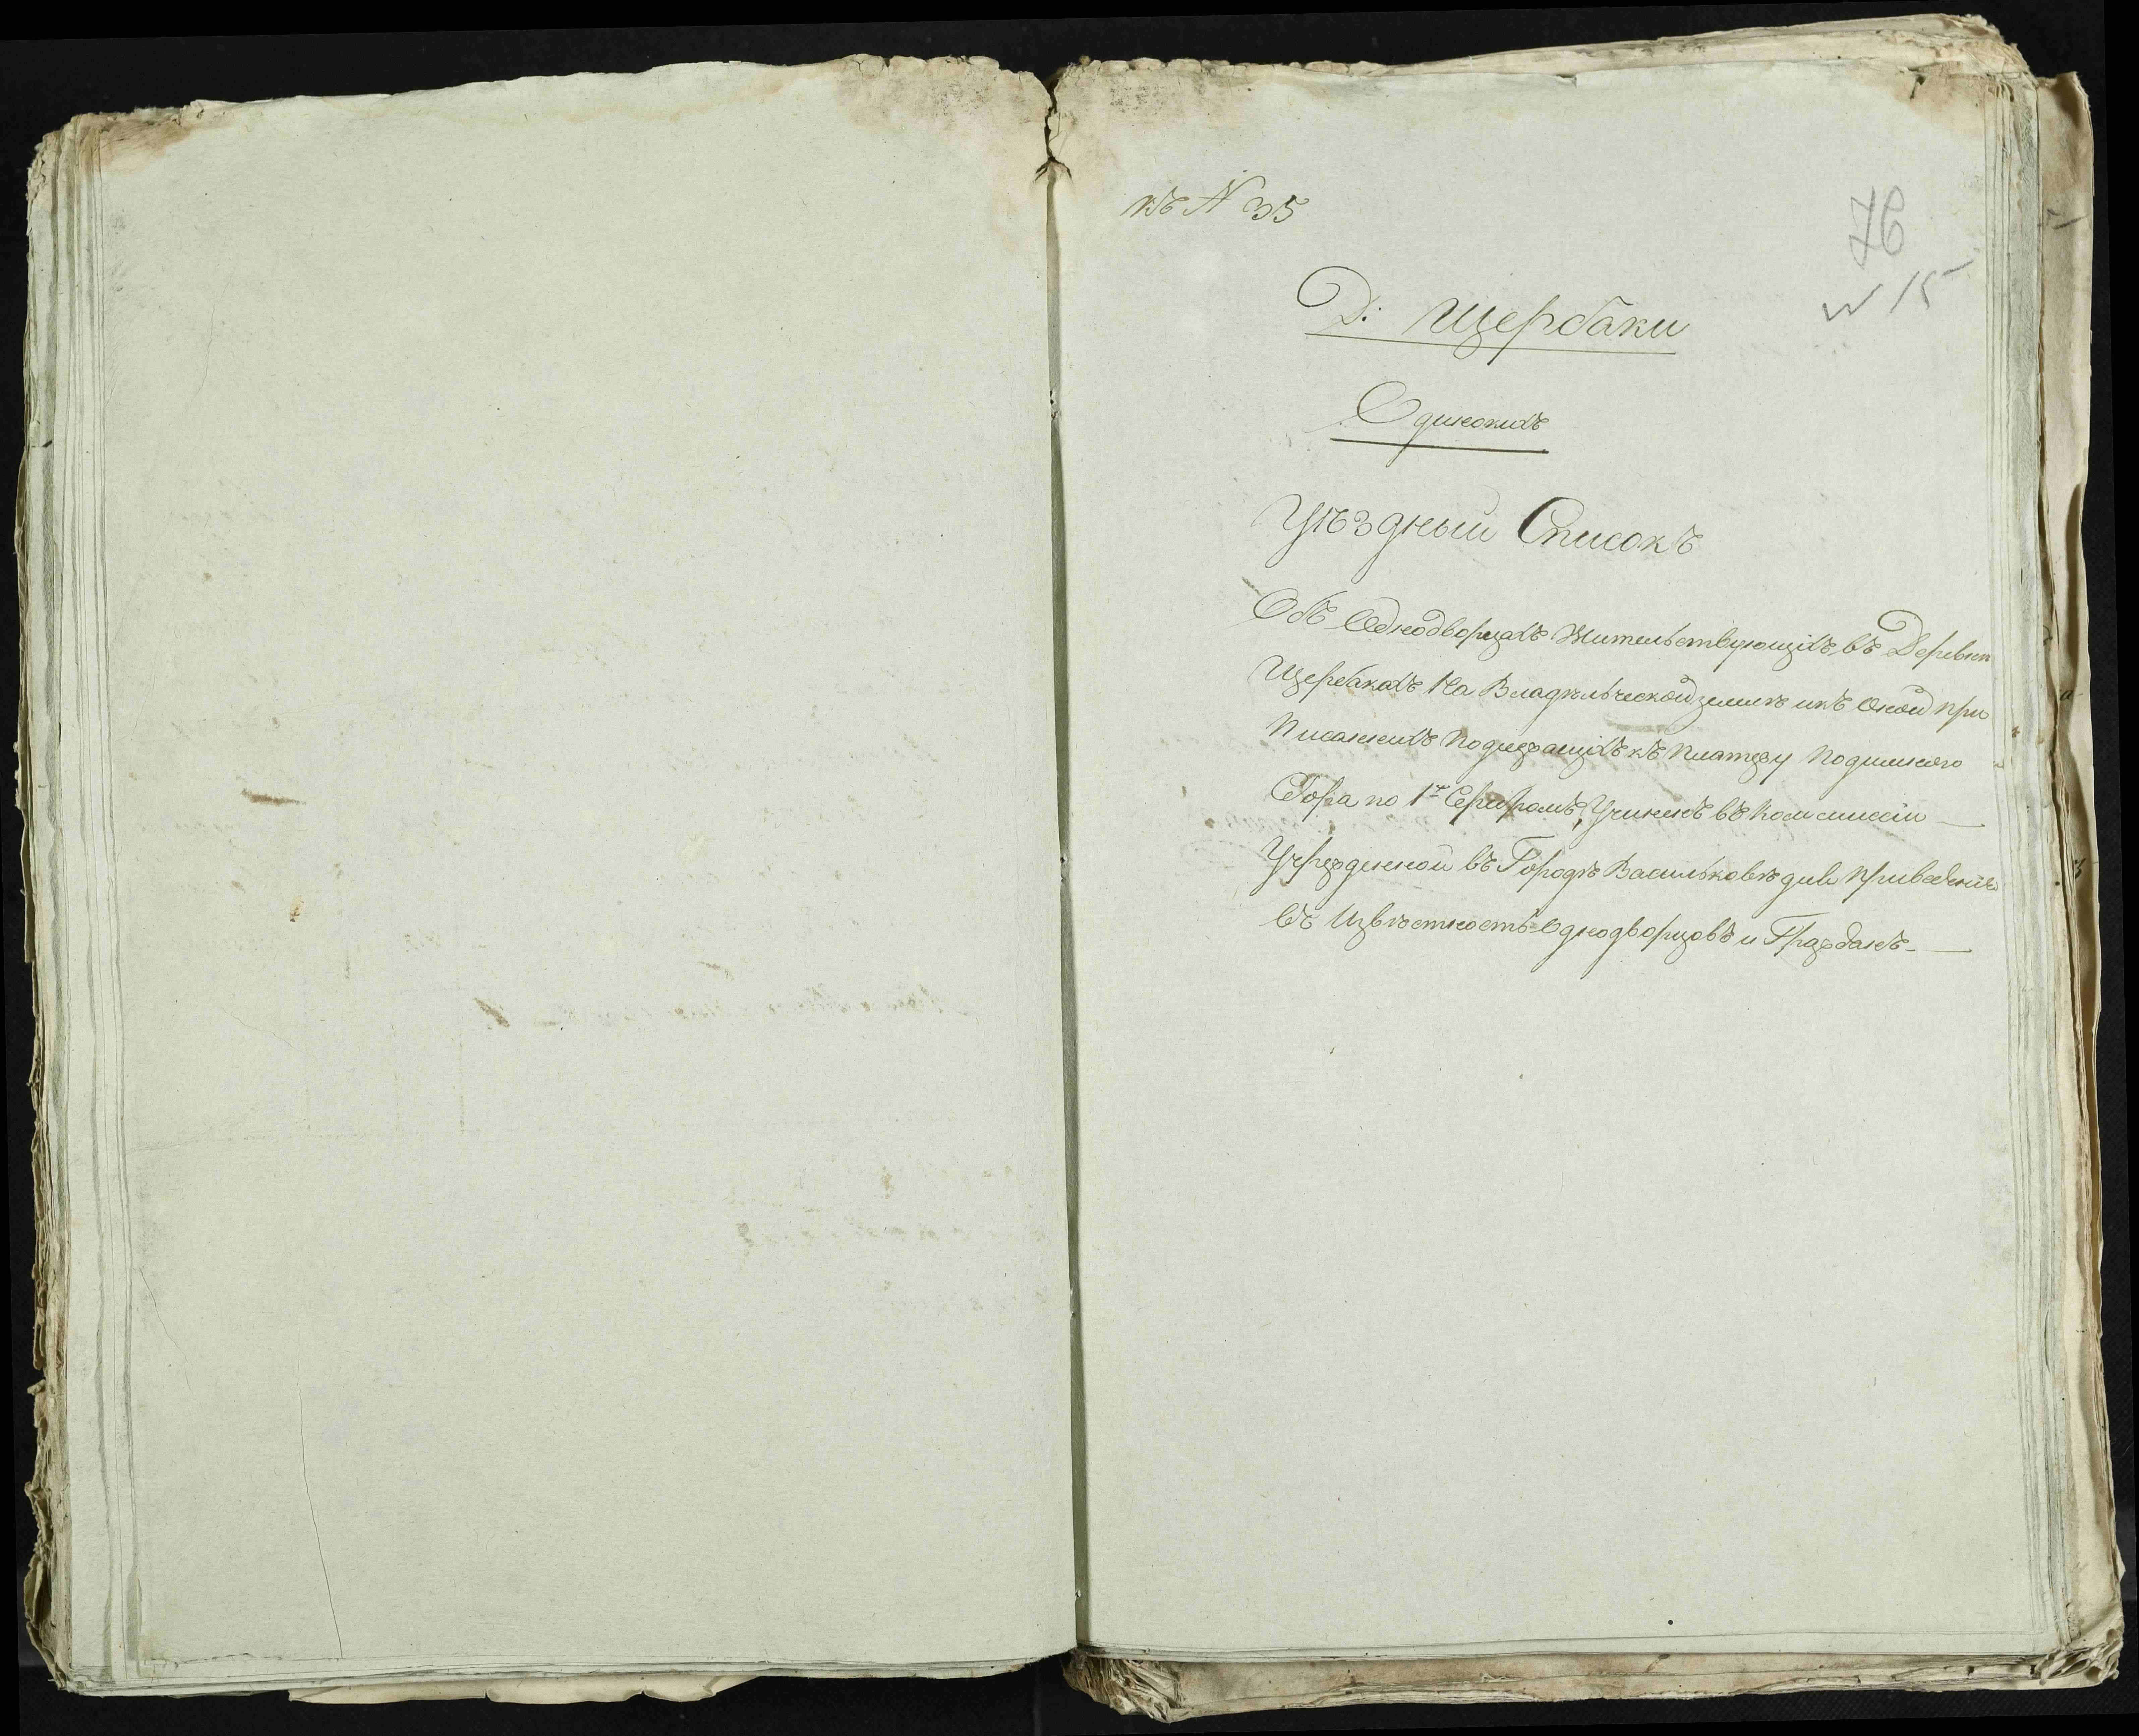 къ N 35
76
N 15
Д: Щербаки
Одинокихъ
Уѣздный Списокъ
Объ Однодворцахъ Жительствующихъ въ Деревнѣ
Щербакахъ На Владѣльческой землѣ икъ Оной при
Писанныхъ подлежащихъ къ Платежу подымного
Сбора по 1й Учиненъ въ Коммиссіи
Учрежденной въ Городѣ Васильковѣ для приведенія
въ Извѣстность Однодворцовъ и Гражданъ